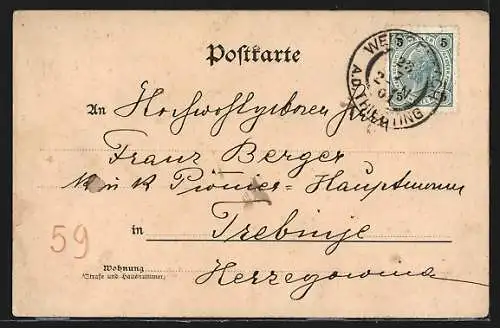 Postkarte
5 5
WEISSE
A.D. TRIESTING
An Hochwohlgeboren Herrn
Franz Berger
K u K Pionier=Hauptmann
59
in Trebinje
Wohnung
(Straße und Hausnummer)
Herzegowina